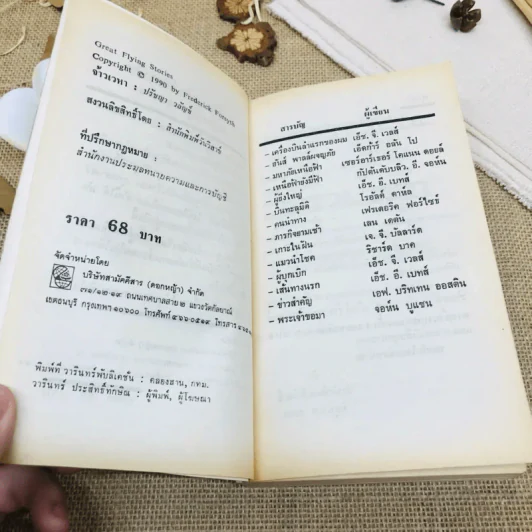 Great Flying Stories
Copyright © 1990 by Frederick Forsyth
จ้าวเวหา : ปรัชญา วลัญช์
สงวนลิขสิทธิ์โดย : สำนักพิมพ์วันวิสาข์
ที่ปรึกษากฎหมาย :
สำนักงานประมวลทนายความและการบัญชี
ราคา 68 บาท
จัดจำหน่ายโดย
บริษัทสามัคคีสาร (ดอกหญ้า) จำกัด
๗๑/๑๒-๑๙ ถนนเทศบาลสาย ๒ แขวงวัดกัลยาณ์
เขตธนบุรี กรุงเทพฯ 10600 โทรศัพท์ ๔๖๖-๐๕๑๙ โทรสาร
พิมพ์ที่ วารินทร์พับลิเคชั่น : คลองสาน, กทม.
วารินทร์ ประสิทธิ์ทักษิณ : ผู้พิมพ์, ผู้โฆษณา
สารบัญ ผู้เขียน
– เครื่องบินลำแรกของผม เอ็ช. จี. เวลส์
– ฮันส์ พาลล์ผจญภัย เอ็ดก้าร์ อลัน โป
– มหาภัยเหนือฟ้า เซอร์อาร์เธอร์ โคแนน ดอยล์
– เหนือฟ้ายังมีฟ้า กัปตันดับบลิว. อี. จอห์น
– ผู้ยิ่งใหญ่ เอ็ช. อี. เบทส์
– ปั้นทะลุมิติ โรอัลด์ ดาห์ล
– คนนำทาง เฟรเดอริค ฟอร์ไซธ์
– ภารกิจยามเช้า เลน เดตัน
– เกาะในฝัน เจ. จี. บัลลาร์ด
– แมวนำโชค ริชาร์ด บาค
– ผู้บุกเบิก เอ็ช. จี. เวลส์
– เส้นทางแรก เอ็ช. อี. เบทส์
– ข่าวสำคัญ เอฟ. บริทเทน ออสติน
– พระเจ้าขอมา จอห์น บูแชน